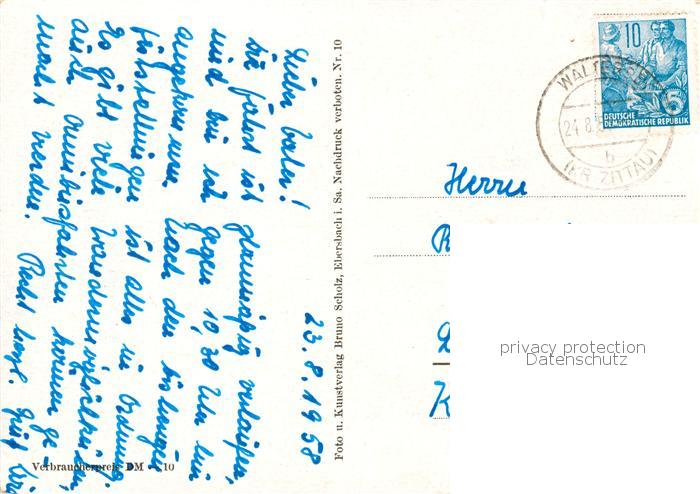 23.8.1958
Lieber Vater!
Die Fahrt ist planmäßig verlaufen,
und bin ich gegen 10,30 Uhr hier
angekommen. Nach den bisherigen
Feststellungen ist alles in Ordnung.
Es gibt viele Wandermöglichkeiten,
auch Omnibusfahrten können ge-
macht werden. Recht herzl. Grüße
Foto u. Kunstverlag Bruno Scholz, Ebersbach i. Sa. Nachdruck verboten. Nr. 10
Verbraucherpreis DM 10
10
5
DEUTSCHE
DEMOKRATISCHE REPUBLIK
24.8.
b
(KR. ZITTAU)
Herrn
privacy protection
Datenschutz